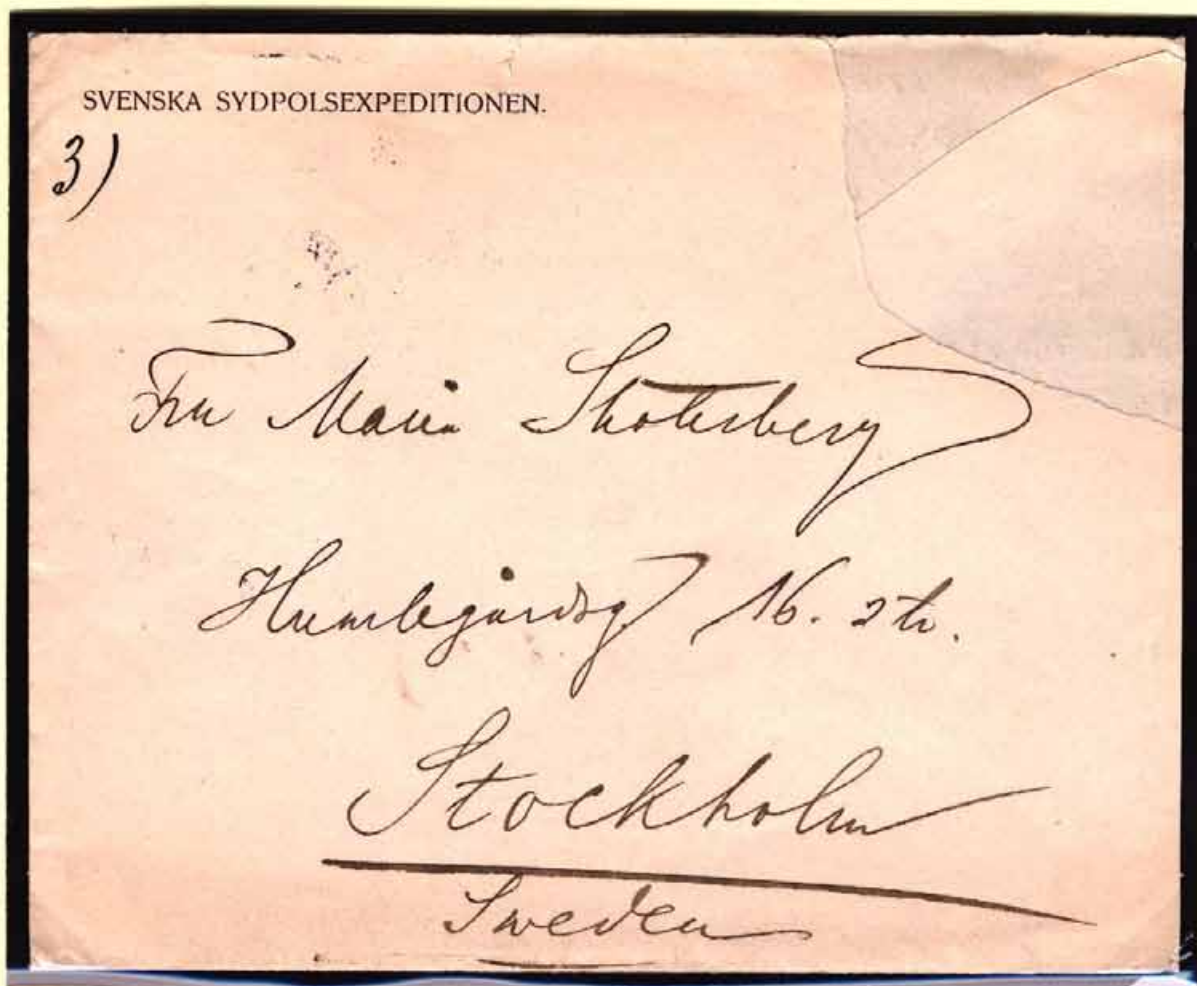 SVENSKA SYDPOLSEXPEDITIONEN.
3)
Fru Maria Skottsberg
Humlegårdsg 16. 2 tr.
Stockholm
Sweden